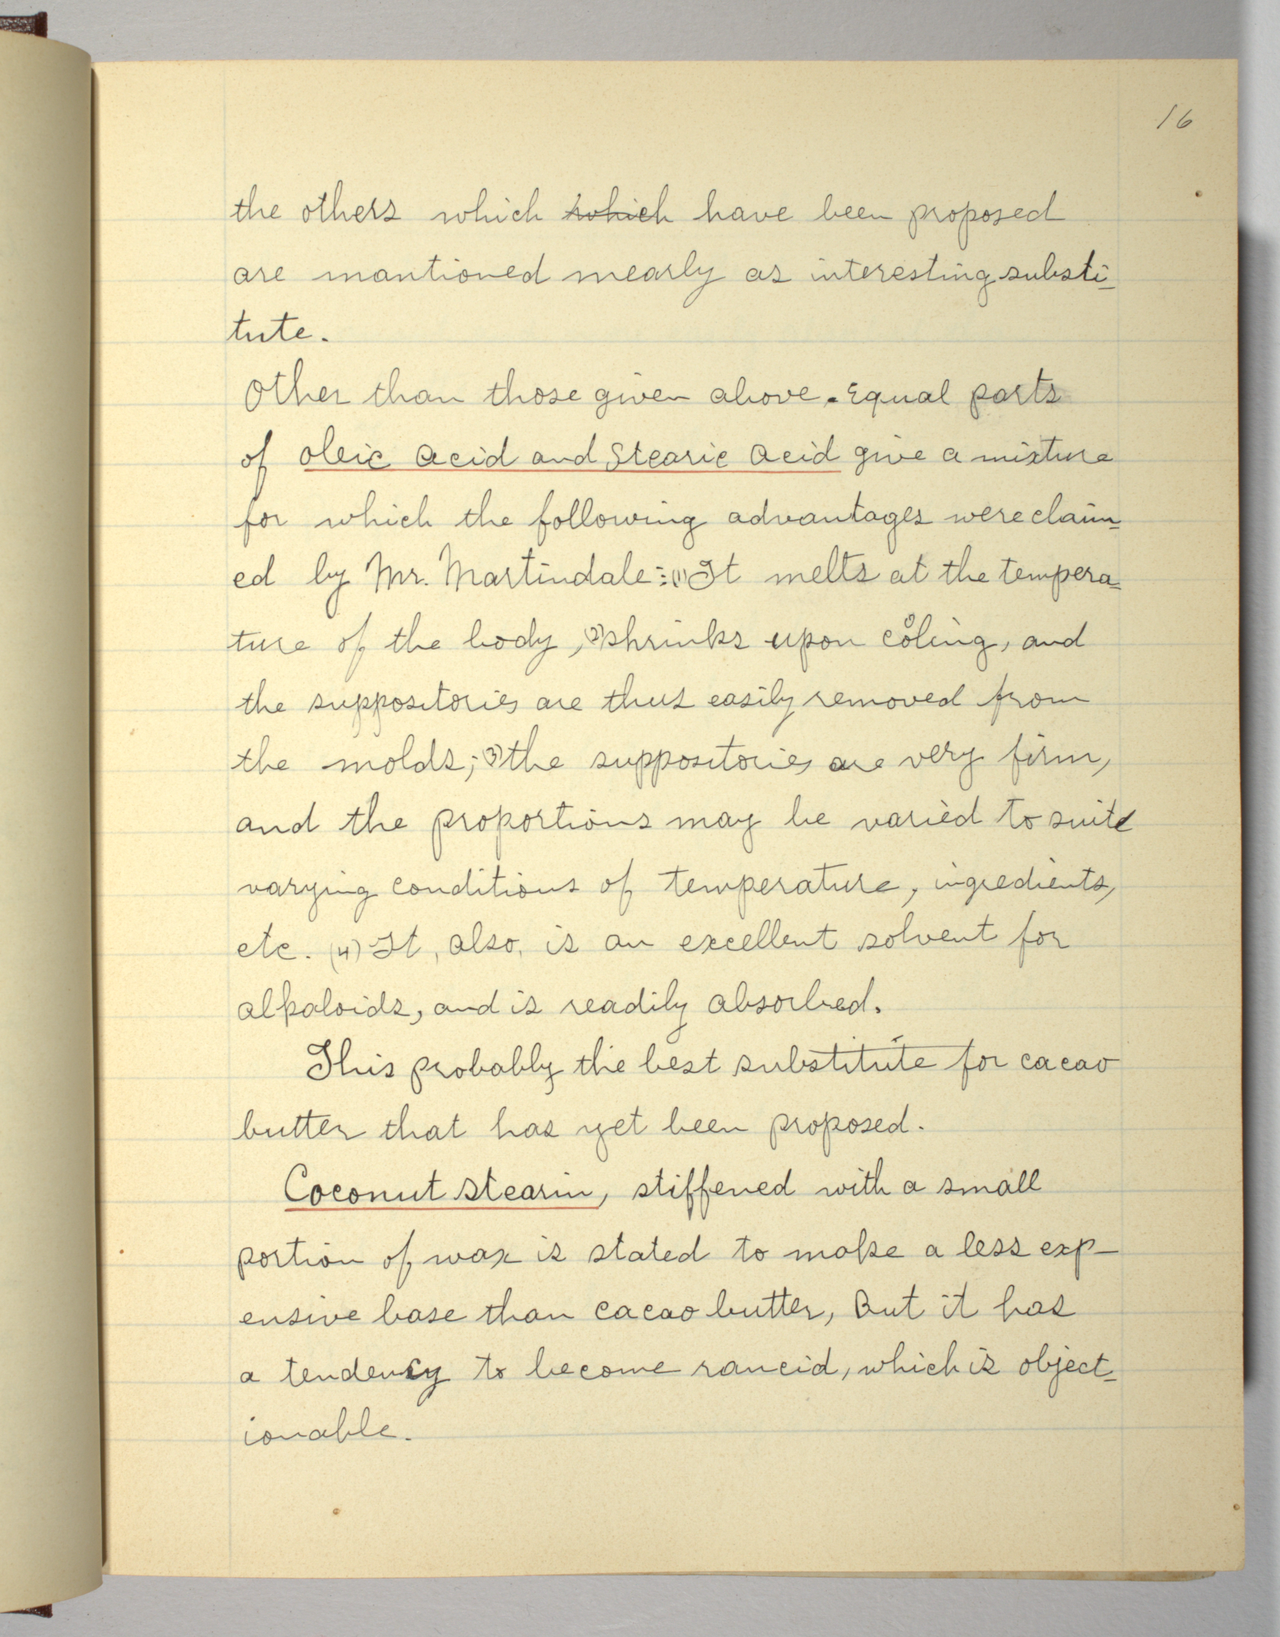 16
the others which which have been proposed
are mantioned mearly as interesting substi-
tute.
Other than those given above. Equal parts
of Oleic Acid and Stearic Acid give a mixture
for which the following advantages were claim-
ed by Mr. Martindale:- (1) It melts at the tempera-
ture of the body, (2) shrinks upon cooling, and
the suppositories are thus easily removed from
the molds; (3) the suppositories are very firm,
and the proportions may be varied to suite
varying conditions of temperature, ingredients,
etc. (4) It, also, is an excellent solvent for
alkaloids, and is readily absorbed.
This probably the best substitute for cacao
butter that has yet been proposed.
Coconut Stearin, stiffened with a small
portion of wax is stated to make a less exp-
ensive base than cacao butter, But it has
a tendency to become rancid, which is object-
ionable.